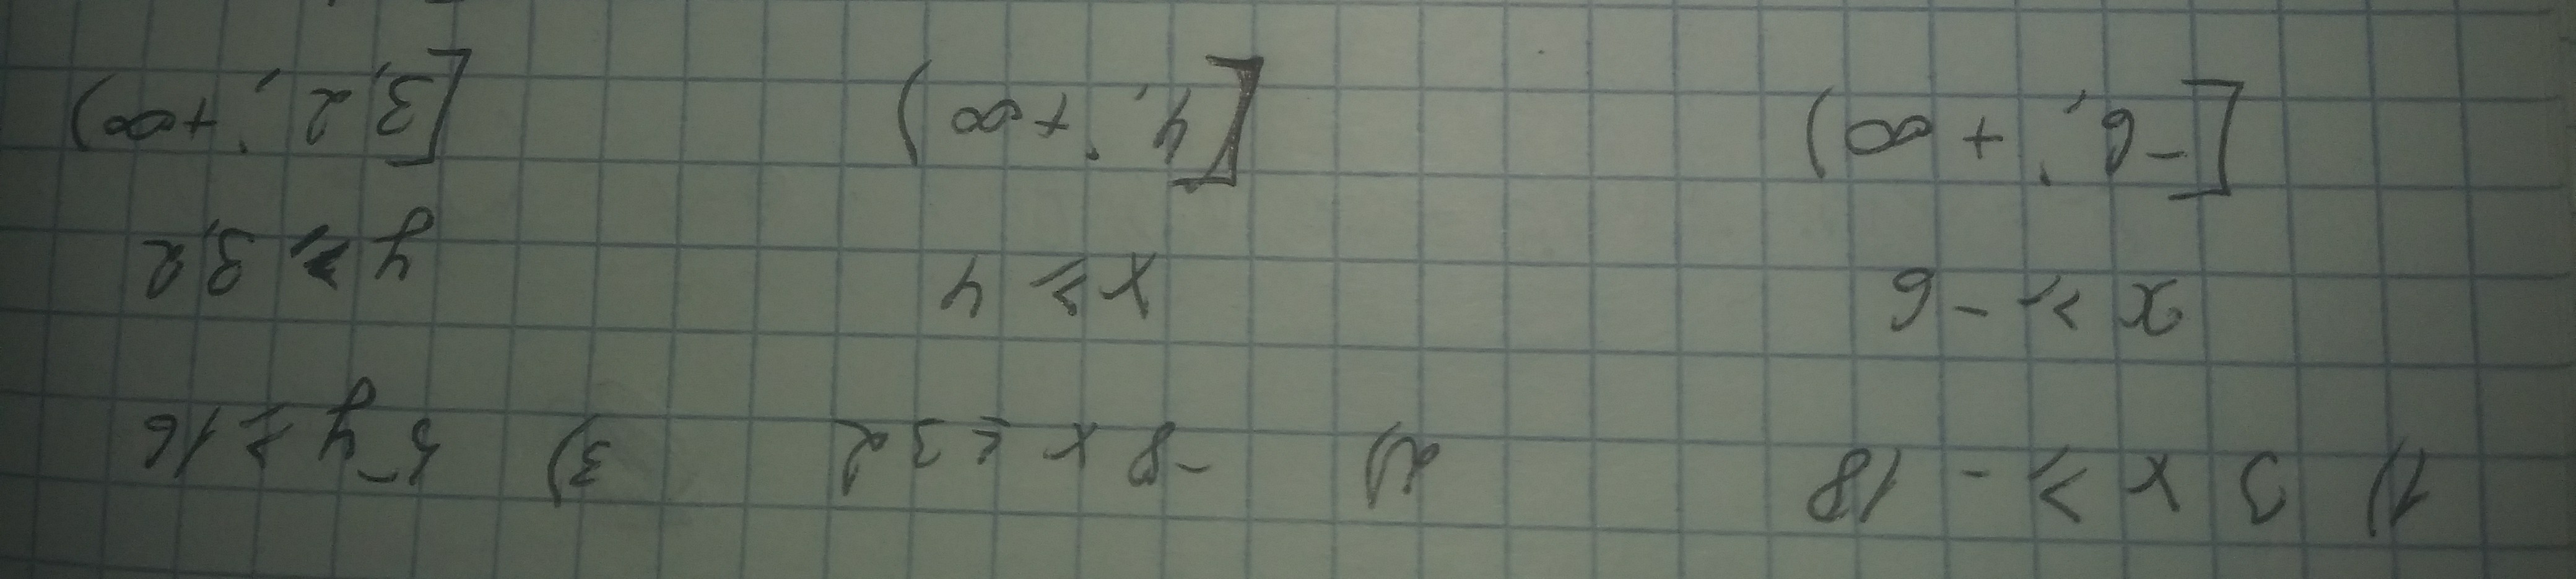 1) 3x ⩾ -18
x ⩾ -6
[-6; +∞)
2) -8x ≤ 32
x ⩾ 4
[4; +∞)
3) 5y ≥ 16
y ⩾ 3,2
[3,2; +∞)